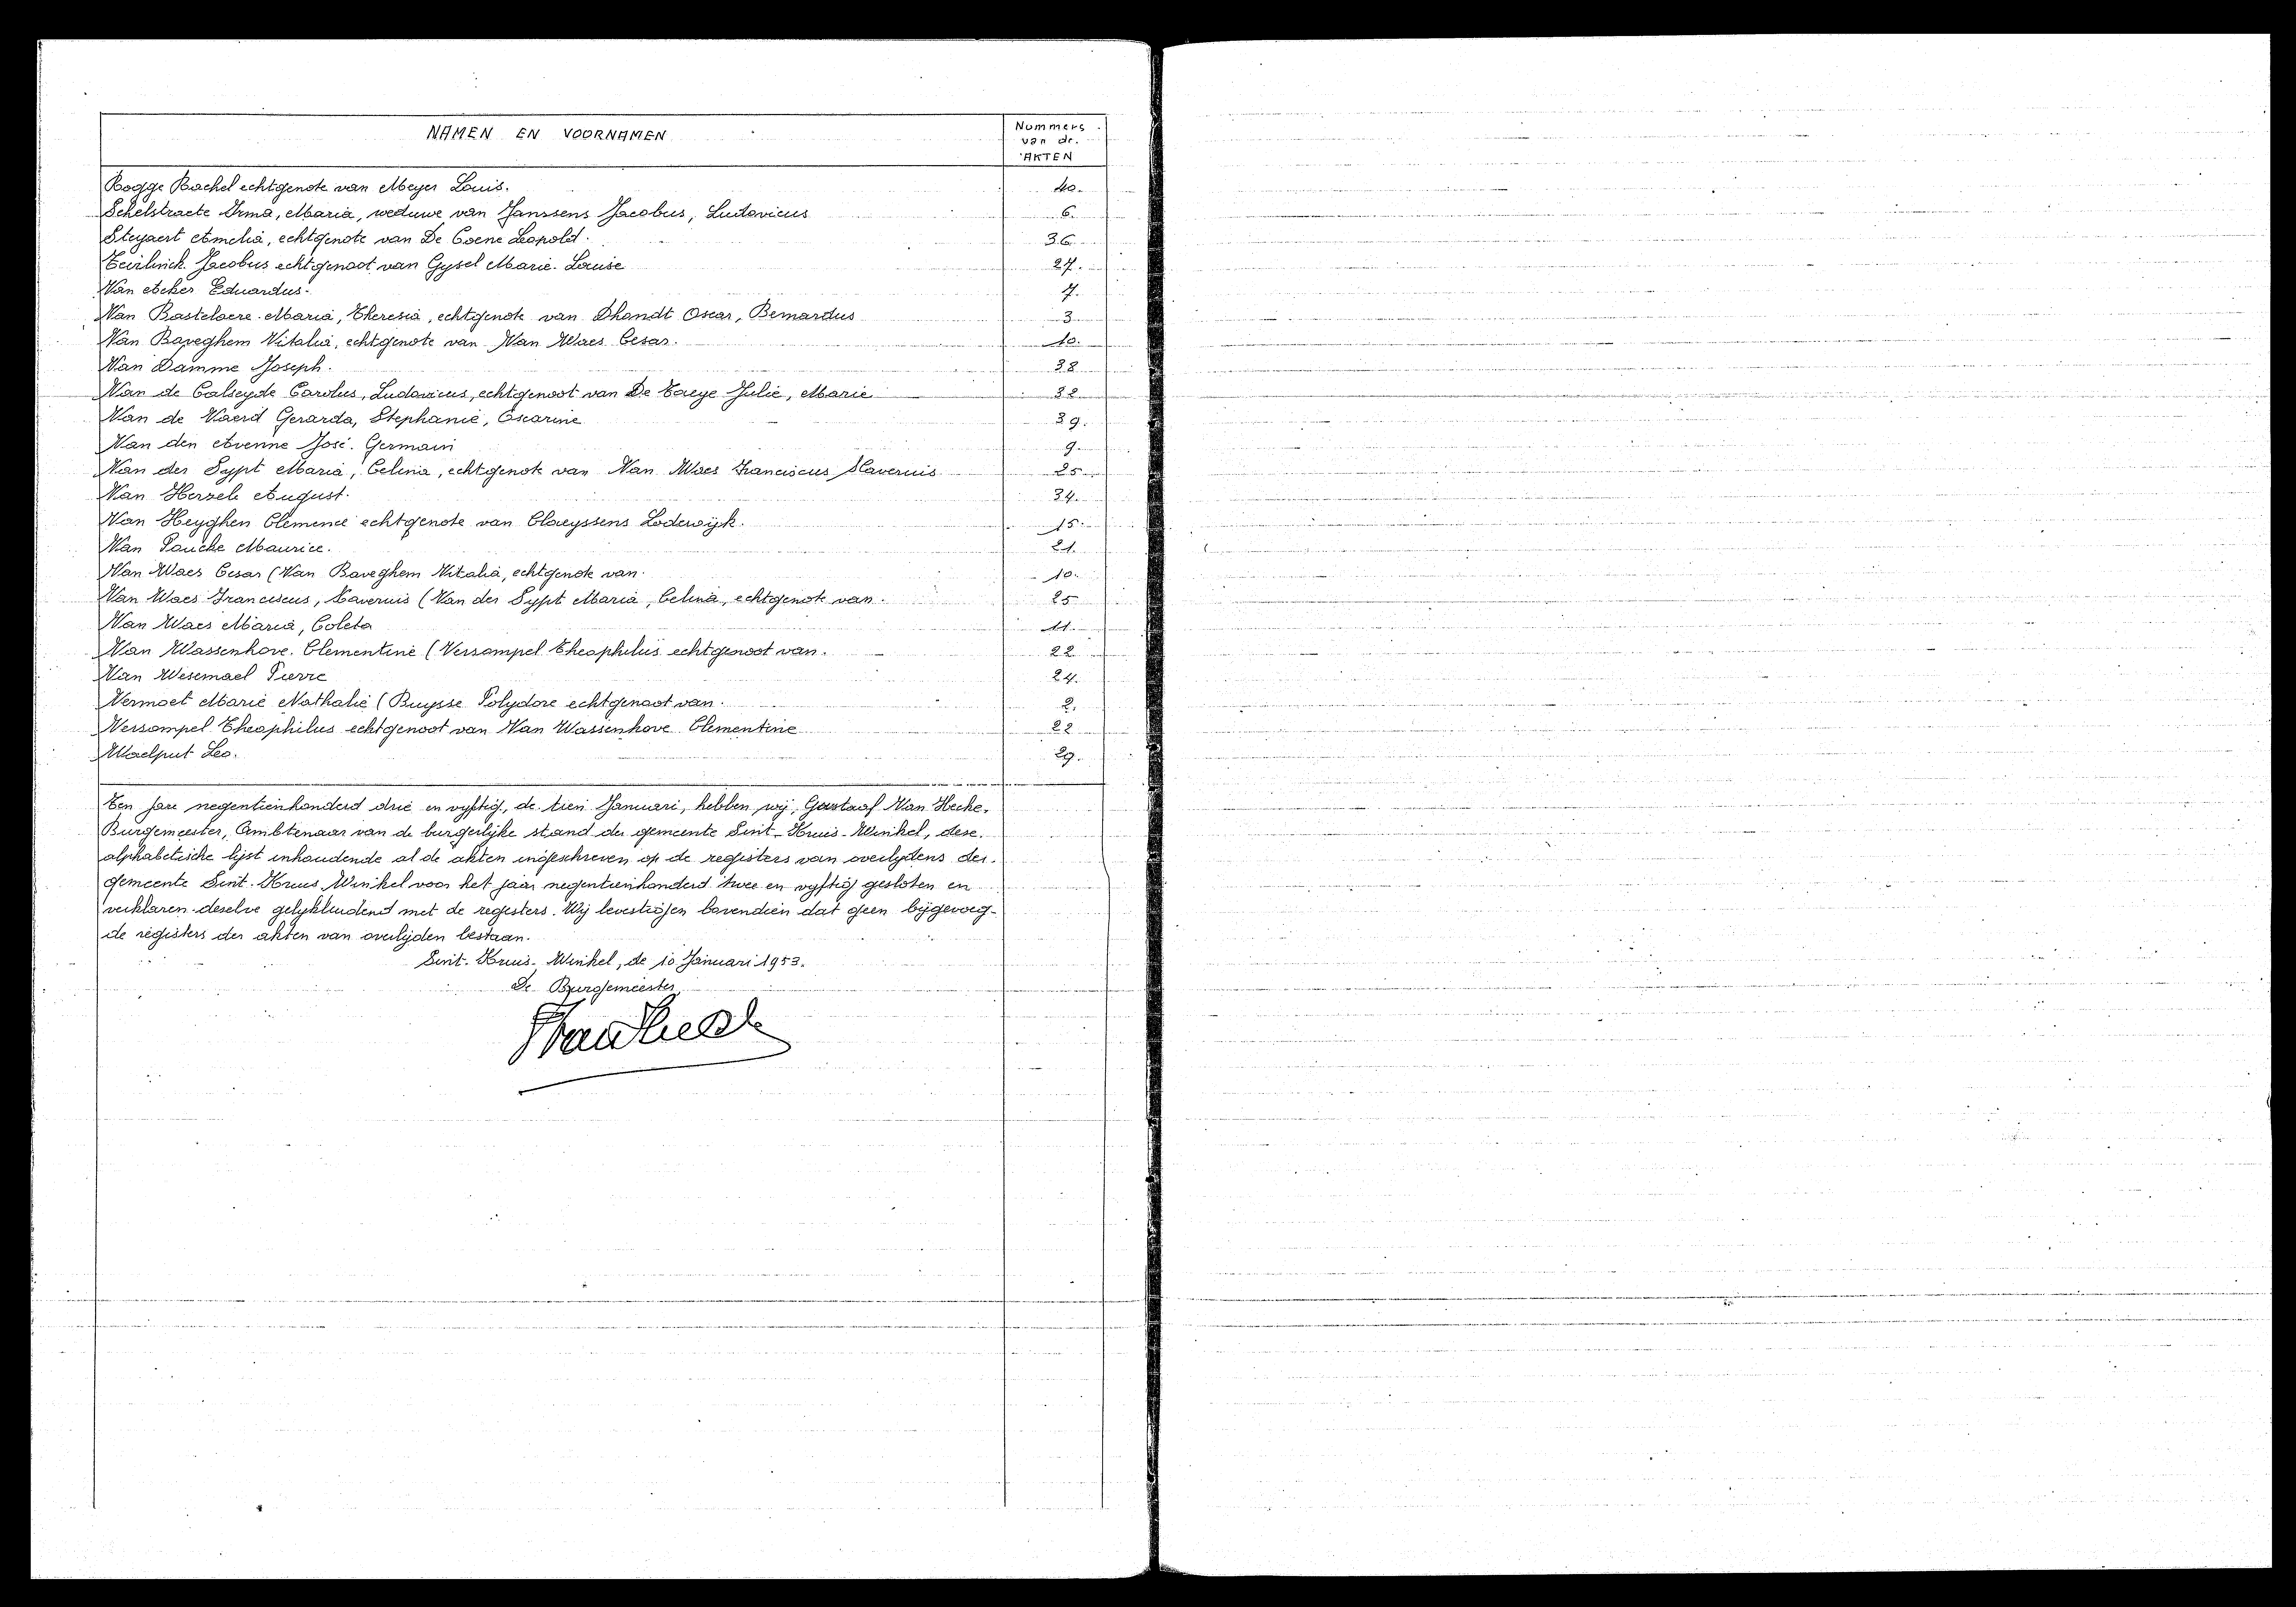 NAMEN EN VOORNAMEN
Nummers
van de
AKTEN
Rogge Rachel echtgenote van Meyer Louis. 40.
Schelstraete Irma, Maria, weduwe van Janssens Jacobus, Ludovicus 6.
Steyaert Amelia, echtgenote van De Coene Leopold. 36.
Teirlinck Jacobus echtgenoot van Gysel Marie-Louise 27.
Van Acker Eduardus. 7.
Van Bastelaere Maria, Theresia, echtgenote van Dhondt Oscar, Bernardus 3
Van Baveghem Vitalia, echtgenote van Van Waes Cesar. 10.
Van Damme Joseph. 38
Van de Calseyde Carolus, Ludovicus, echtgenoot van De Taeye Julie, Marie 32
Van de Vaerd Gerarda, Stephanie, Oscarine 39.
Van den Avenne José. Germain 9.
Van der Sypt Maria, Celina, echtgenote van Van Waes Franciscus Xaverius 25
Van Herzele August. 34.
Van Heyghen Clemence echtgenote van Claeyssens Lodewijk. 15.
Van Poucke Maurice. 21.
Van Waes Cesar (Van Baveghem Vitalia, echtgenote van. 10.
Van Waes Franciscus, Xaverius (Van der Sypt Maria, Celina, echtgenote van. 25
Van Waes Maria, Coleta 11.
Van Wassenhove Clementine (Versompel Theophilus echtgenoot van. 22
Van Wesemael Pierre 24.
Vermaet Marie Nathalie (Buysse Polydore echtgenoot van. 2.
Versompel Theophilus echtgenoot van Van Wassenhove Clementine 22
Waelput Leo. 29.
Ten jare negentienhonderd drie en vyftig, de tien Januari, hebben wij, Gustaaf Van Hecke,
Burgemeester, Ambtenaar van de burgerlijke stand der gemeente Sint-Kruis-Winkel, dese
alphabetische lijst inhoudende al de akten ingeschreven op de registers van overlydens der
gemeente Sint-Kruis-Winkel voor het jaar negentienhonderd twee en vyftig gesloten en
verklaren deselve gelykluidend met de registers. Wij bevestigen bovendien dat geen bijgevoeg-
de registers der akten van overlijden bestaan.
Sint-Kruis-Winkel, de 10 Januari 1953.
De Burgemeester,